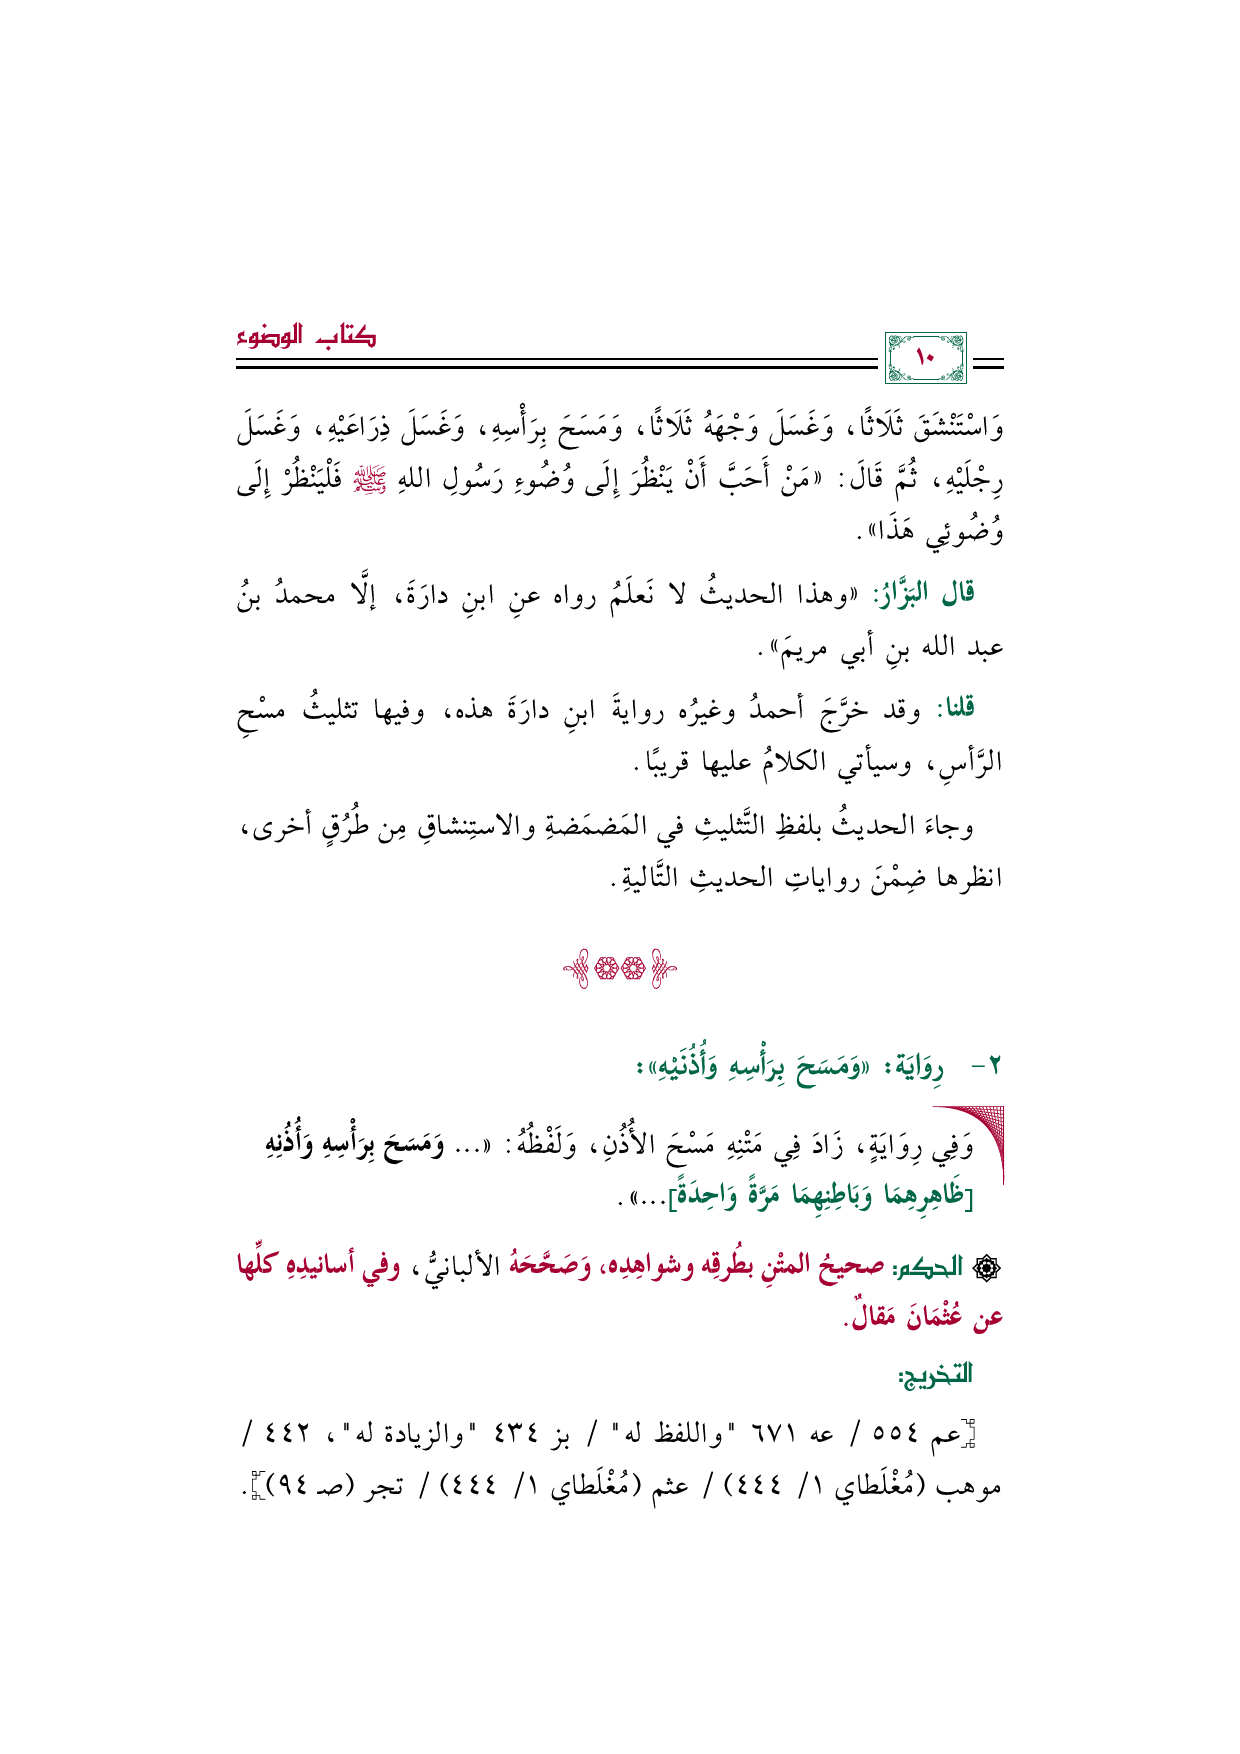 كتاب الوضوء
١٠
وَاسْتَنْشَقَ ثَلَاثًا، وَغَسَلَ وَجْهَهُ ثَلَاثًا، وَمَسَحَ بِرَأْسِهِ، وَغَسَلَ ذِرَاعَيْهِ، وَغَسَلَ
رِجْلَيْهِ، ثُمَّ قَالَ: «مَنْ أَحَبَّ أَنْ يَنْظُرَ إِلَى وُضُوءِ رَسُولِ اللهِ ﷺ فَلْيَنْظُرْ إِلَى
وُضُوئِي هَذَا».
قال البَزَّارُ: «وهذا الحديثُ لا نَعلَمُ رواه عنِ ابنِ دارَةَ، إلَّا محمدُ بنُ
عبد الله بنِ أبي مريمَ».
قلنا: وقد خرَّجَ أحمدُ وغيرُه روايةَ ابنِ دارَةَ هذه، وفيها تثليثُ مسْحِ
الرَّأسِ، وسيأتي الكلامُ عليها قريبًا.
وجاءَ الحديثُ بلفظِ التَّثليثِ في المَضمَضةِ والاستِنشاقِ مِن طُرُقٍ أخرى،
انظرها ضِمْنَ رواياتِ الحديثِ التَّاليةِ.
٢- رِوَايَة: «وَمَسَحَ بِرَأْسِهِ وَأُذُنَيْهِ»:
وَفِي رِوَايَةٍ، زَادَ فِي مَتْنِهِ مَسْحَ الأُذُنِ، وَلَفْظُهُ: «... وَمَسَحَ بِرَأْسِهِ وَأُذُنِهِ
[ظَاهِرِهِمَا وَبَاطِنِهِمَا مَرَّةً وَاحِدَةً]...».
الحكم: صحيحُ المتْنِ بطُرقِه وشواهِدِه، وَصَحَّحَهُ الألبانيُّ، وفي أسانيدِهِ كلِّها
عن عُثْمَانَ مَقالٌ.
التخريج:
[عم ٥٥٤ / عه ٦٧١ "واللفظ له" / بز ٤٣٤ "والزيادة له"، ٤٤٢ /
موهب (مُغْلَطاي ١/ ٤٤٤) / عثم (مُغْلَطاي ١/ ٤٤٤) / تجر (صـ ٩٤)].